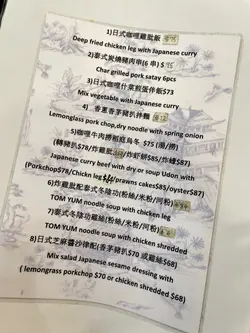 1)日式咖哩雞扒飯
Deep fried chicken leg with Japanese curry
2)泰式炭燒豬肉串(6 串) $
Char grilled pork satay 6pcs
3)日式咖哩什菜煎蛋伴飯$73
Mix vegetable with Japanese curry
4) 香蔥香茅豬扒拌麵
Lemonglass pork chop,dry noodle with spring onion
5)咖哩牛肉撈稻庭烏冬 $75 (湯/撈)
(轉豬扒$78/炸雞扒 /炸蝦餅$85/炸蠔$87)
Japanese curry beef with dry or soup Udon with
(Porkchop$78/Chicken leg /prawns cakes$85/oyster$87)
6)炸雞扒配泰式冬陰功(粉絲/米粉/河粉)
TOM YUM noodle soup with chicken leg
7)泰式冬陰功雞絲(粉絲/米粉/河粉)
TOM YUM noodle soup with chicken shredded
8)日式芝麻醬沙律配(香茅豬扒$70 或雞絲$68)
Mix salad Japanese sesame dressing with
( lemongrass porkchop $70 or chicken shredded $68)